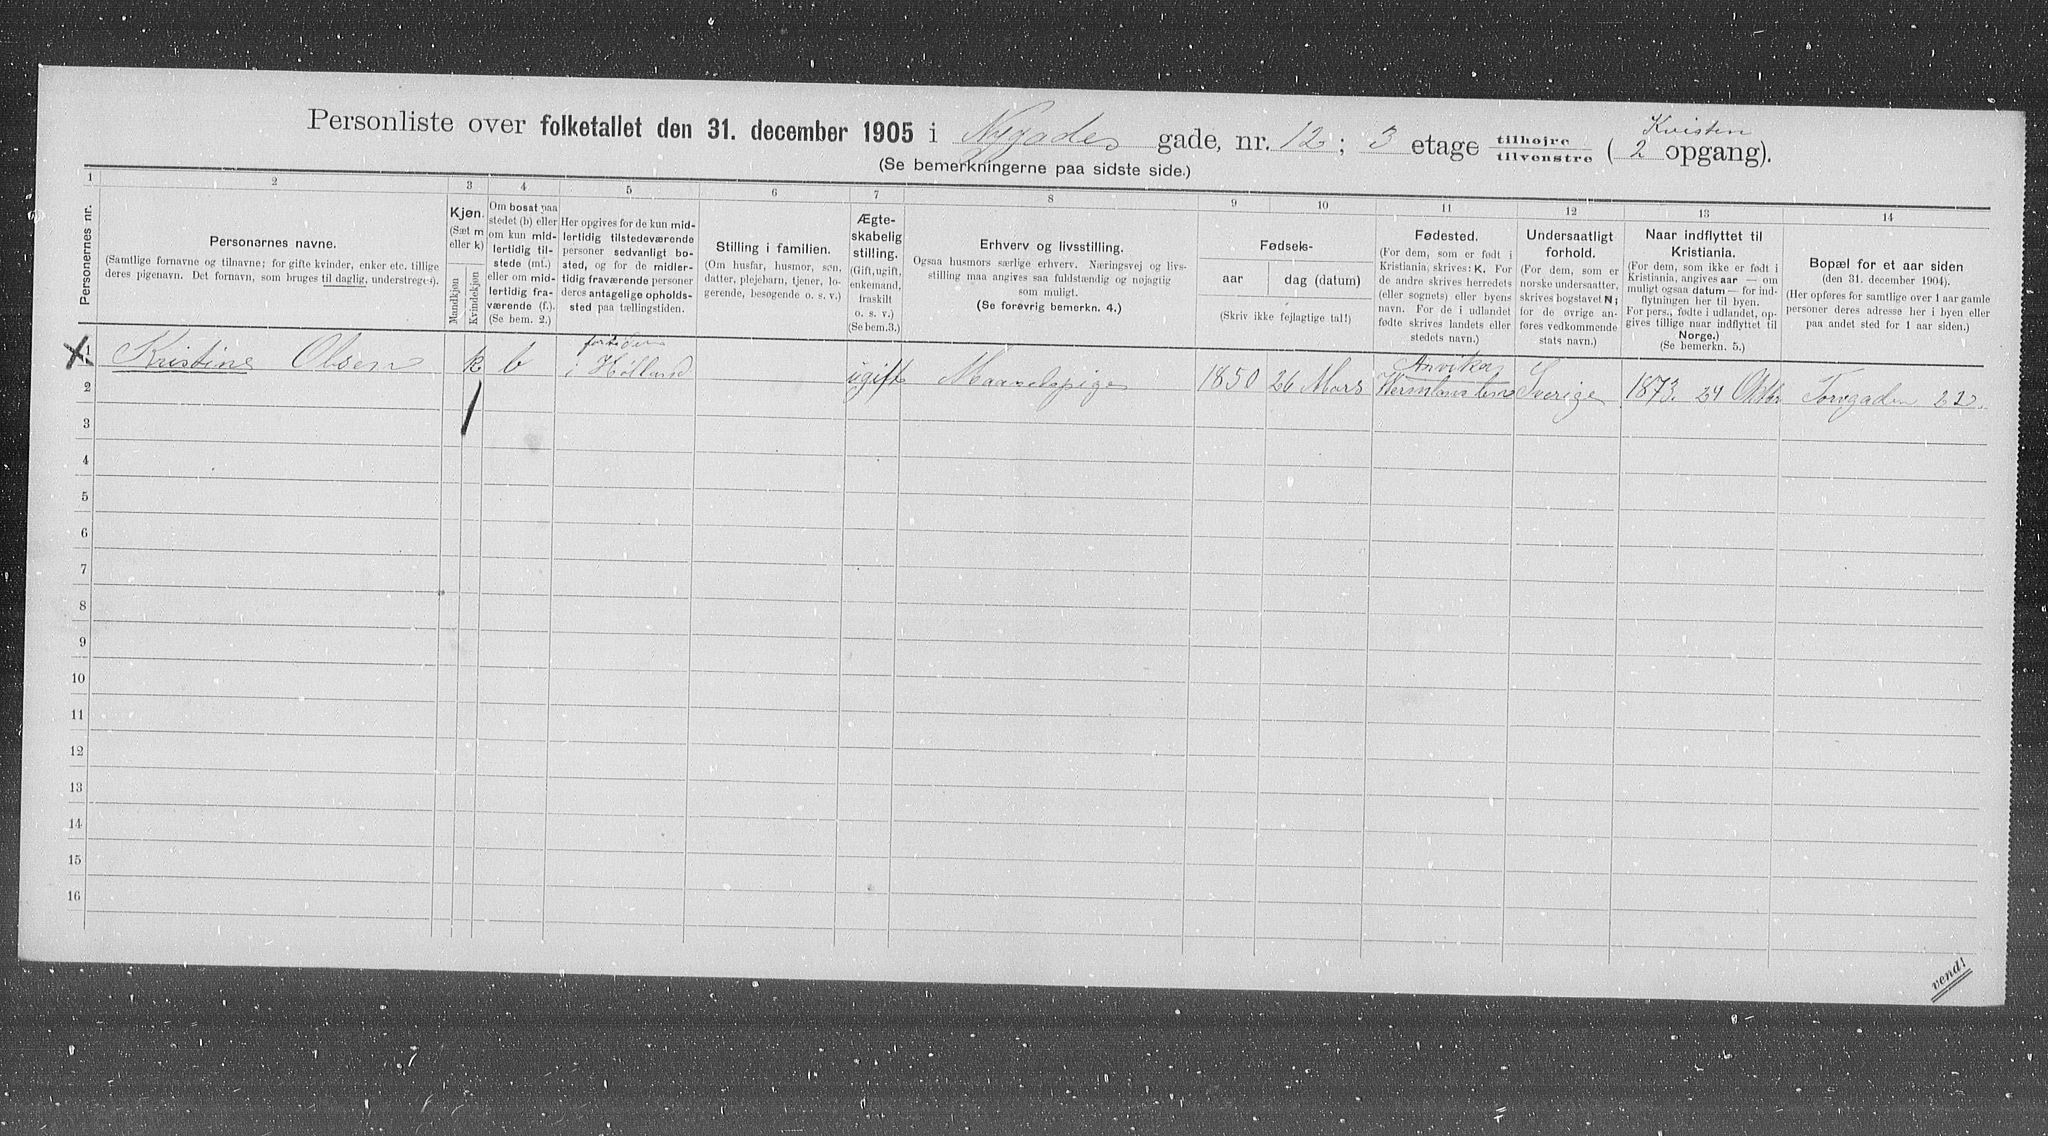 Personliste over folketallet den 31. december 1905 i Nygades gade, nr. 12; 3 etage tilhøjre tilvenstre ( Kvisten 2 opgang).
(Se bemerkningerne paa sidste side.)
1 2 3 4 5 6 7 8 9 10 11 12 13 14
Personernes nr.
Personernes navne.
(Samtlige fornavne og tilnavne; for gifte kvinder, enker etc. tillige
deres pigenavn. Det fornavn, som bruges til daglig, understreges).
Kjøn.
(Sæt m
eller k)
Mandkjøn
Kvindekjøn
Om bosat paa
stedet (b) eller
om kun mid-
lertidig til-
stede (mt.)
eller om mid-
lertidig fra-
værende (f.).
(Se bem. 2.)
Her opgives for de kun mid-
lertidig tilstedeværende
personer sedvanligt bo-
sted, og for de midler-
tidig fraværende personer
deres antagelige opholds-
sted paa tællingstiden.
Stilling i familien.
(Om husfar, husmor, søn,
datter, plejebarn, tjener, lo-
gerende, besøgende o. s. v.)
Ægte-
skabelig
stilling.
(Gift, ugift,
enkemand,
fraskilt
o. s. v.)
(Se bem.3.)
Erhverv og livsstilling.
Ogsaa husmors særlige erhverv. Næringsvej og livs-
stilling maa angives saa fuldstændig og nøjagtig
som muligt.
(Se forøvrig bemerkn. 4.)
Fødsels-
aar
dag (datum)
(Skriv ikke fejlagtige tal!)
Fødested.
(For dem, som er født i
Kristiania, skrives: K. For
de andre skrives herredets
(eller sognets) eller byens
navn. For de i udlandet
fødte skrives landets eller
stedets navn.)
Undersaatligt
forhold.
(For dem, som er
norske undersaatter,
skrives bogstavet N;
for de øvrige an-
føres vedkommende
stats navn.)
Naar indflyttet til
Kristiania.
(For dem, som ikke er født i
Kristiania, angives aar — om
muligt ogsaa datum — for ind-
flytningen her til byen.
For pers., fødte i udlandet, op-
gives tillige naar indflyttet til
Norge.)
(Se bemerkn. 5.)
Bopæl for et aar siden
(den 31. december 1904).
(Her opføres for samtlige over 1 aar gamle
personer deres adresse her i byen eller
paa andet sted for 1 aar siden.)
1 Kristine Olsen k b i Holland ugift 1850 26 Mars Arvika Sverige 1873. 24 Oktbr Torvgaden 22.
2
3
4
5
6
7
8
9
10
11
12
13
14
15
16
vend!